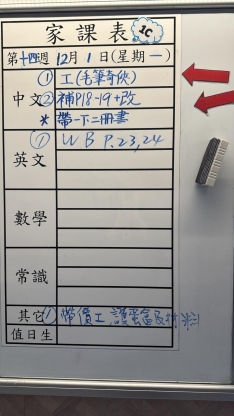 家課表 1C
第十四週 12月1日(星期一)
中文 ① 工(毛筆奇俠)
② 補P18-19+改
* 帶一下二冊書
英文 ① WB P.23,24
數學
常識
其它 ① 帶價工、護蛋盒及材料
值日生